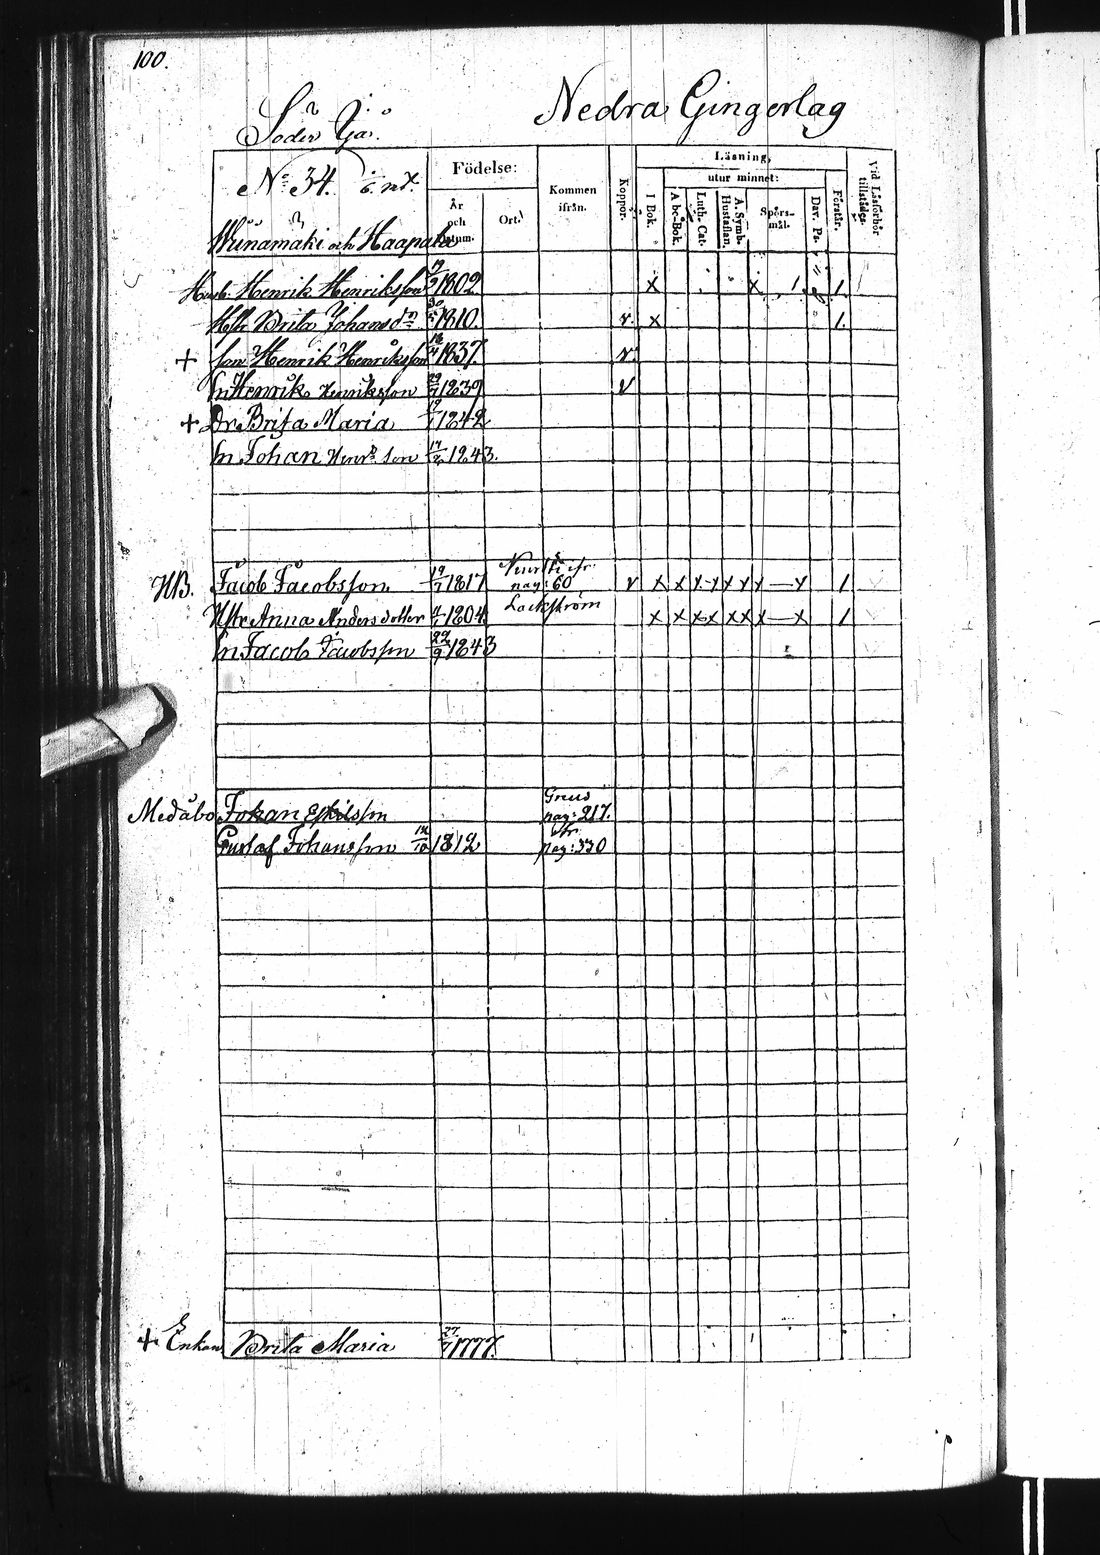 100.
Söder Yja.
Nedra Gingerlag
No 34.
Födelse:
År och Datum.
Ort.
Kommen ifrån.
Koppor.
Läsning,
utur minnet:
I Bok.
A bc-Bok.
Luth. Cat.
Hustaflan.
A. Symb.
Spörs-mål.
Dav. Ps.
Förstår.
Vid Läsförhör tillstädes.
och Haapala
Husb. Henrik Henriksson 1802 x x 1. 1.
Hst Brita Johansdr 1810. v. x 1.
+ Son Henrik Henriksson 1837. v.
Sn Henrik Henriksson 1839 v
+ Dr Brita Maria 1842
Sn Johan Henr. son 1843.
HB. Jacob Jacobsson 19/7 1817 pag: 60 v x x x x x x x — x 1
Hstr Anna Andersdotter 1804 Lackström x x x x x x x — x 1
Sn Jacob Jacobsson 22/9 1843
Medåbo Johan Eskilsson pag: 217.
Gustaf Johansson 1812 pag: 330
+ Enkan Brita Maria 1777.